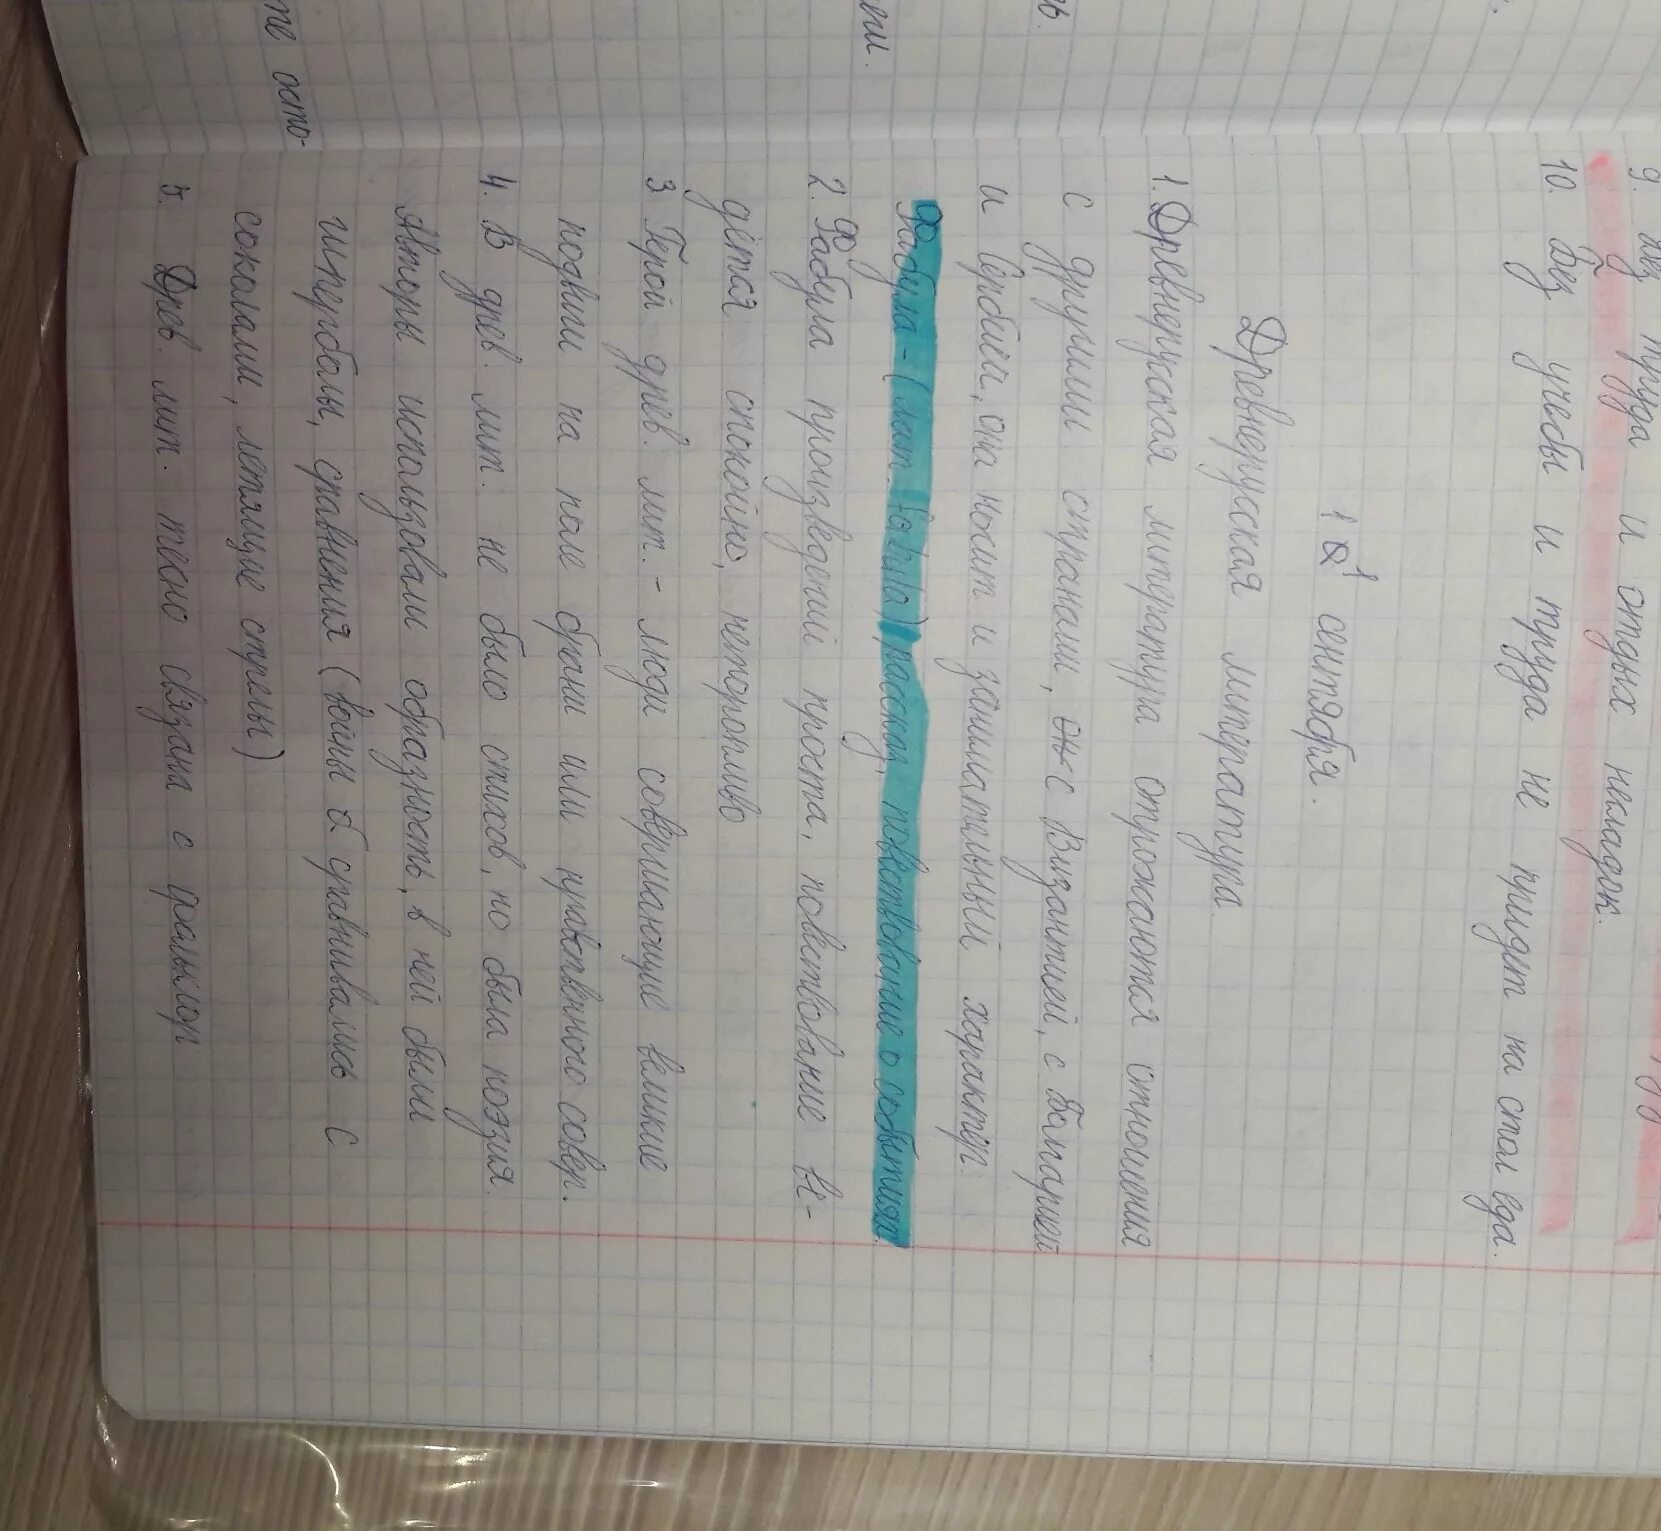 9. Без труда и отдых несладок.
10. Без учебы и труда не придет на стол еда.
11 сентября.
Древнерусская литература.
1. Древнерусская литература отрожаются отношения
с другими странами, с Византией, с Балгарией
и Сербией, она носит и занимательный характер
Фабула - (лат. fabula) рассказ, повествование о событиях.
2. Фабула произведений проста, повествование ве-
дётся спокойно, неторопливо
3 Герой древ. лит. - люди совершающие великие
подвиги на поле брани или нравственного совер.
4. В древ. лит. не было стихов, но была поэзия.
Авторы использовали образность, в ней были
гиперболы, сравнения (войны сравнивались с
соколами, летящие стрелы)
5. Древ. лит. тесно связана с фольклор
те осто-
ени.